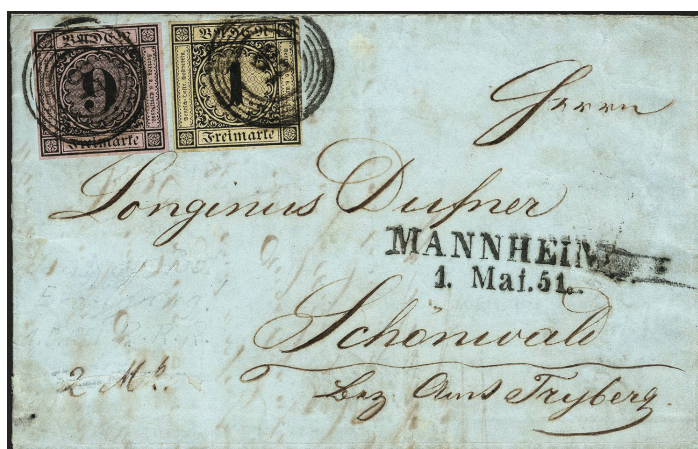 BADEN
9
Freimarke
BADEN
1
Freimarke
Herrn
Longinus Dufner
MANNHEIM
1. Mai. 51.
Schönwald
2 Mb.
Bez Amt Tryberg.